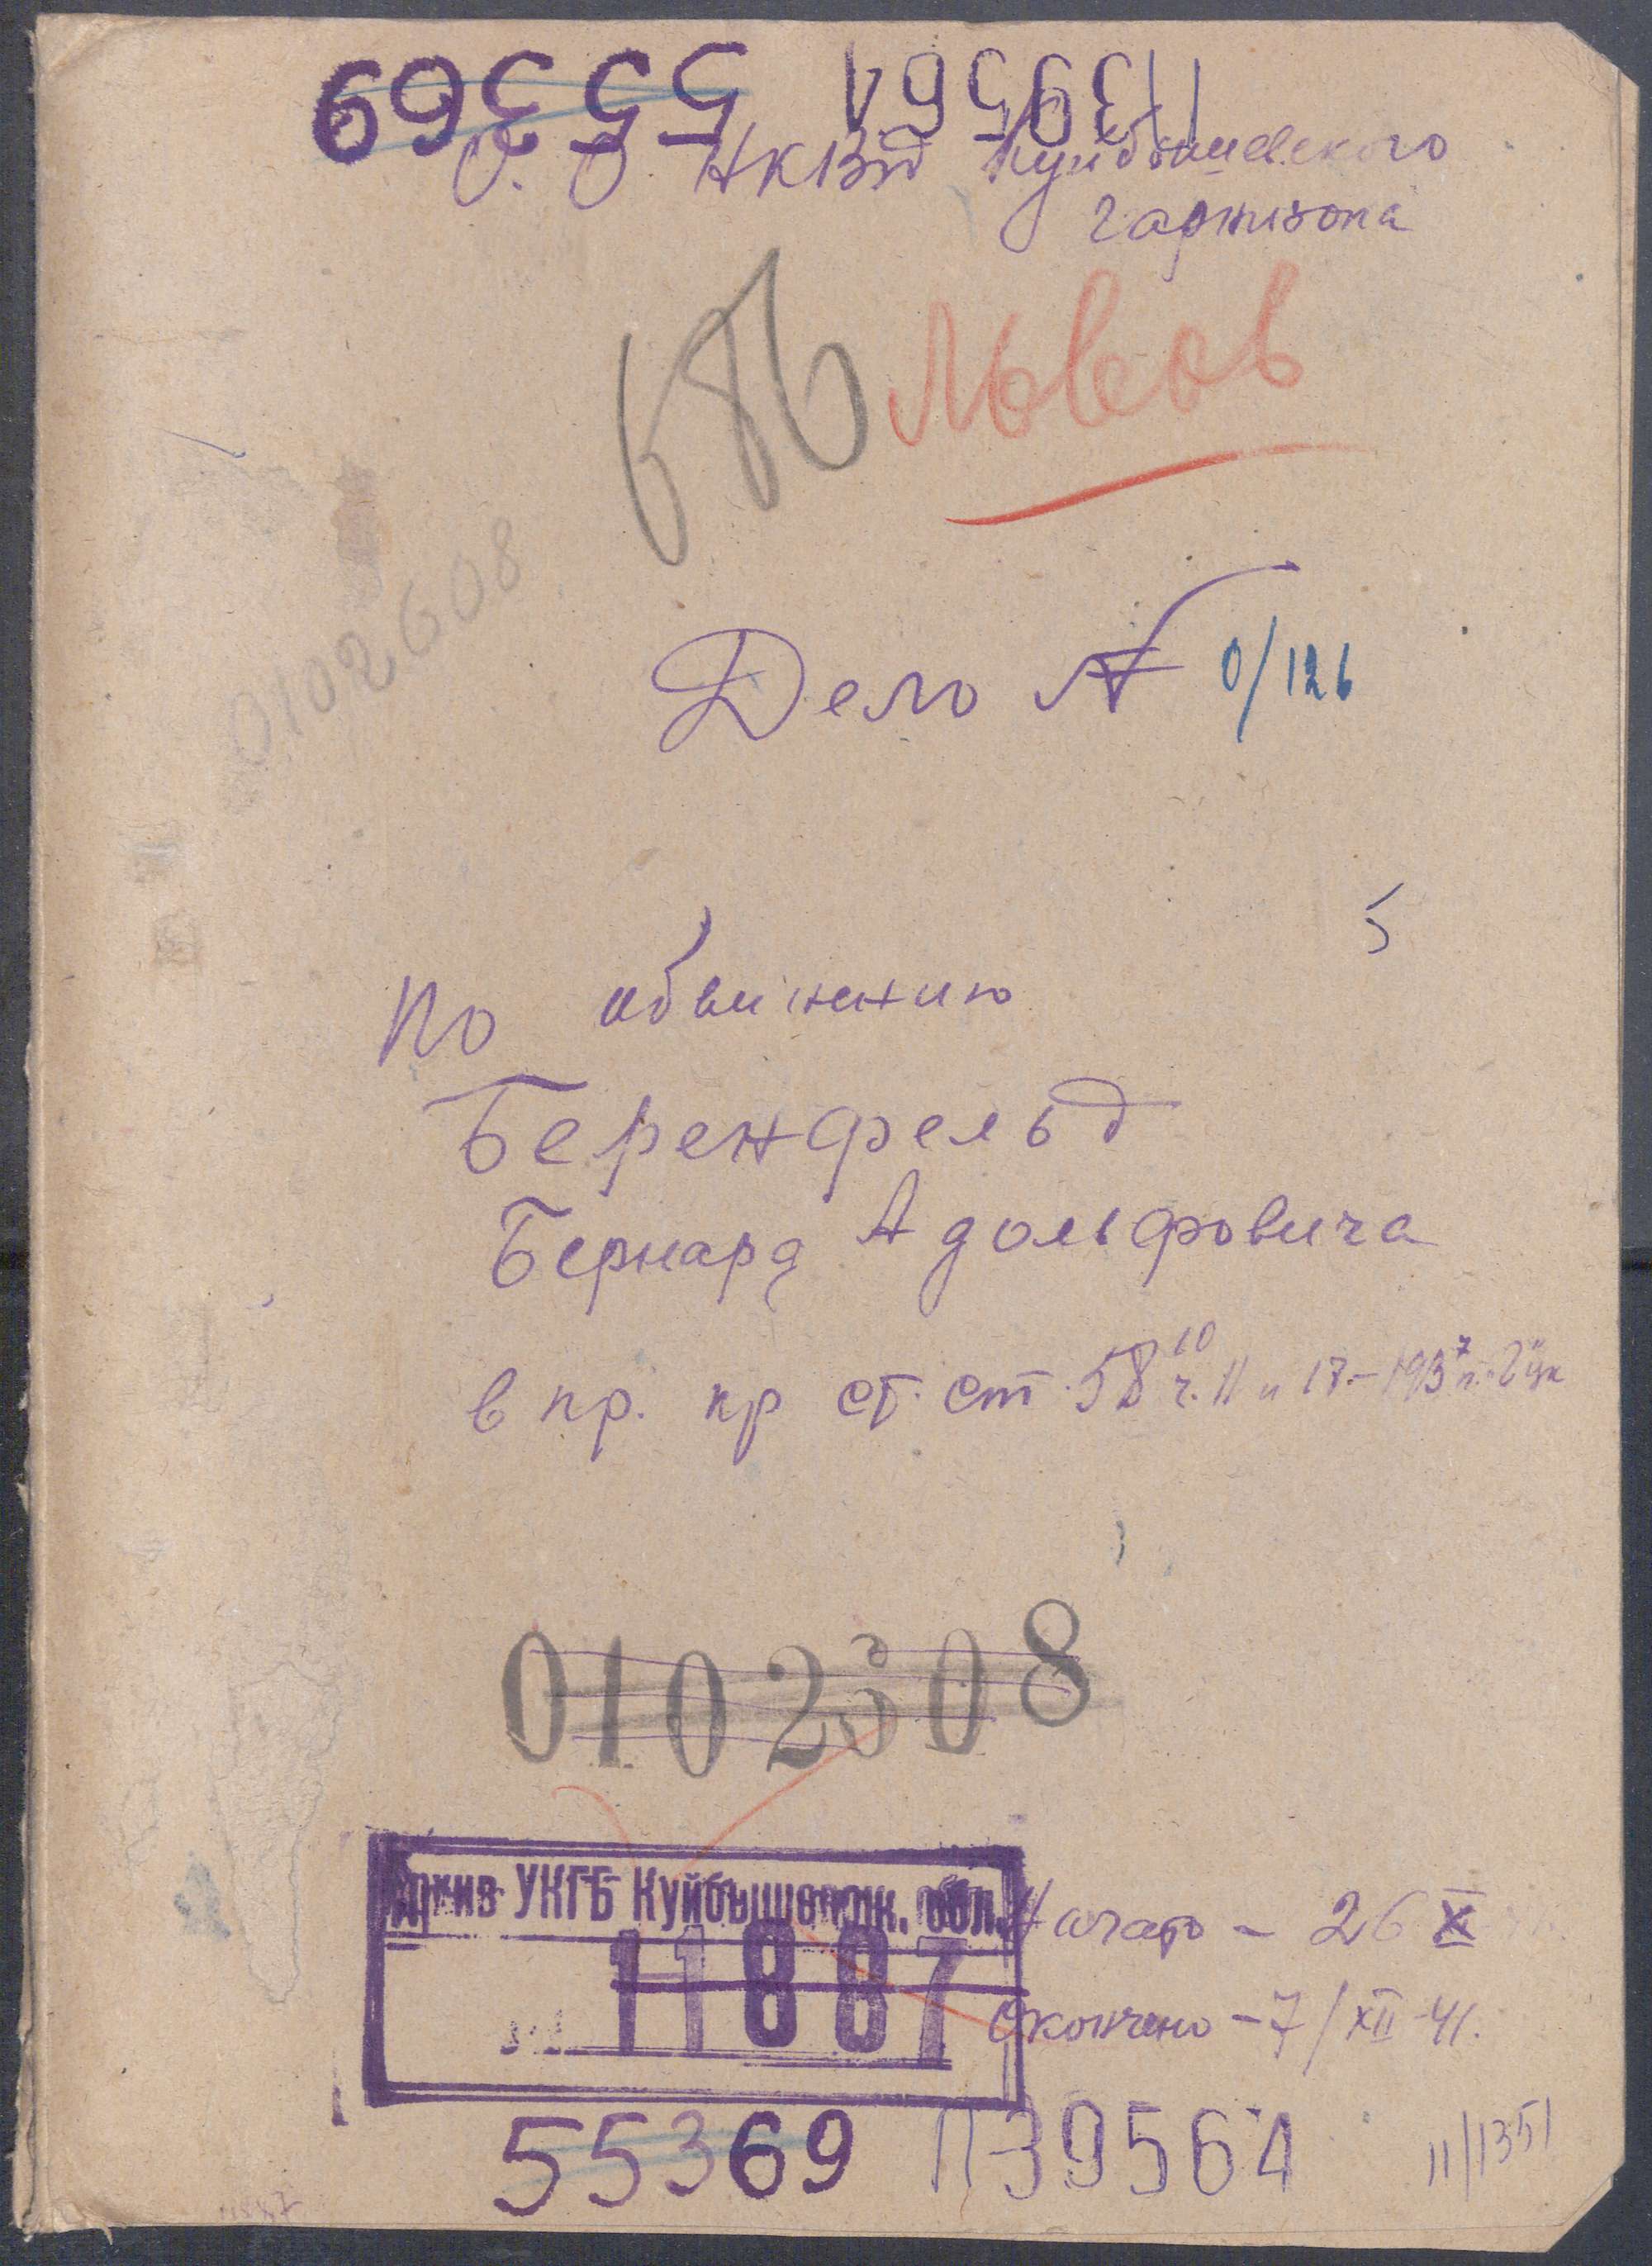 55369 П39564
О. О. НКВД Куйбышевского
гарнизона
686 Львов
0102608
Дело № 0/126
5
по обвинению
Беренфельд
Бернард Адольфовича
в пр. пр ст. ст. 58 10 ч. II и 17-193 7 п. "г" ук
0102308
Архив УКГБ Куйбышевск. обл.
№ 11887
Начато - 26 X
Окончено - 7/XII 41.
55369 П39564
11/1351